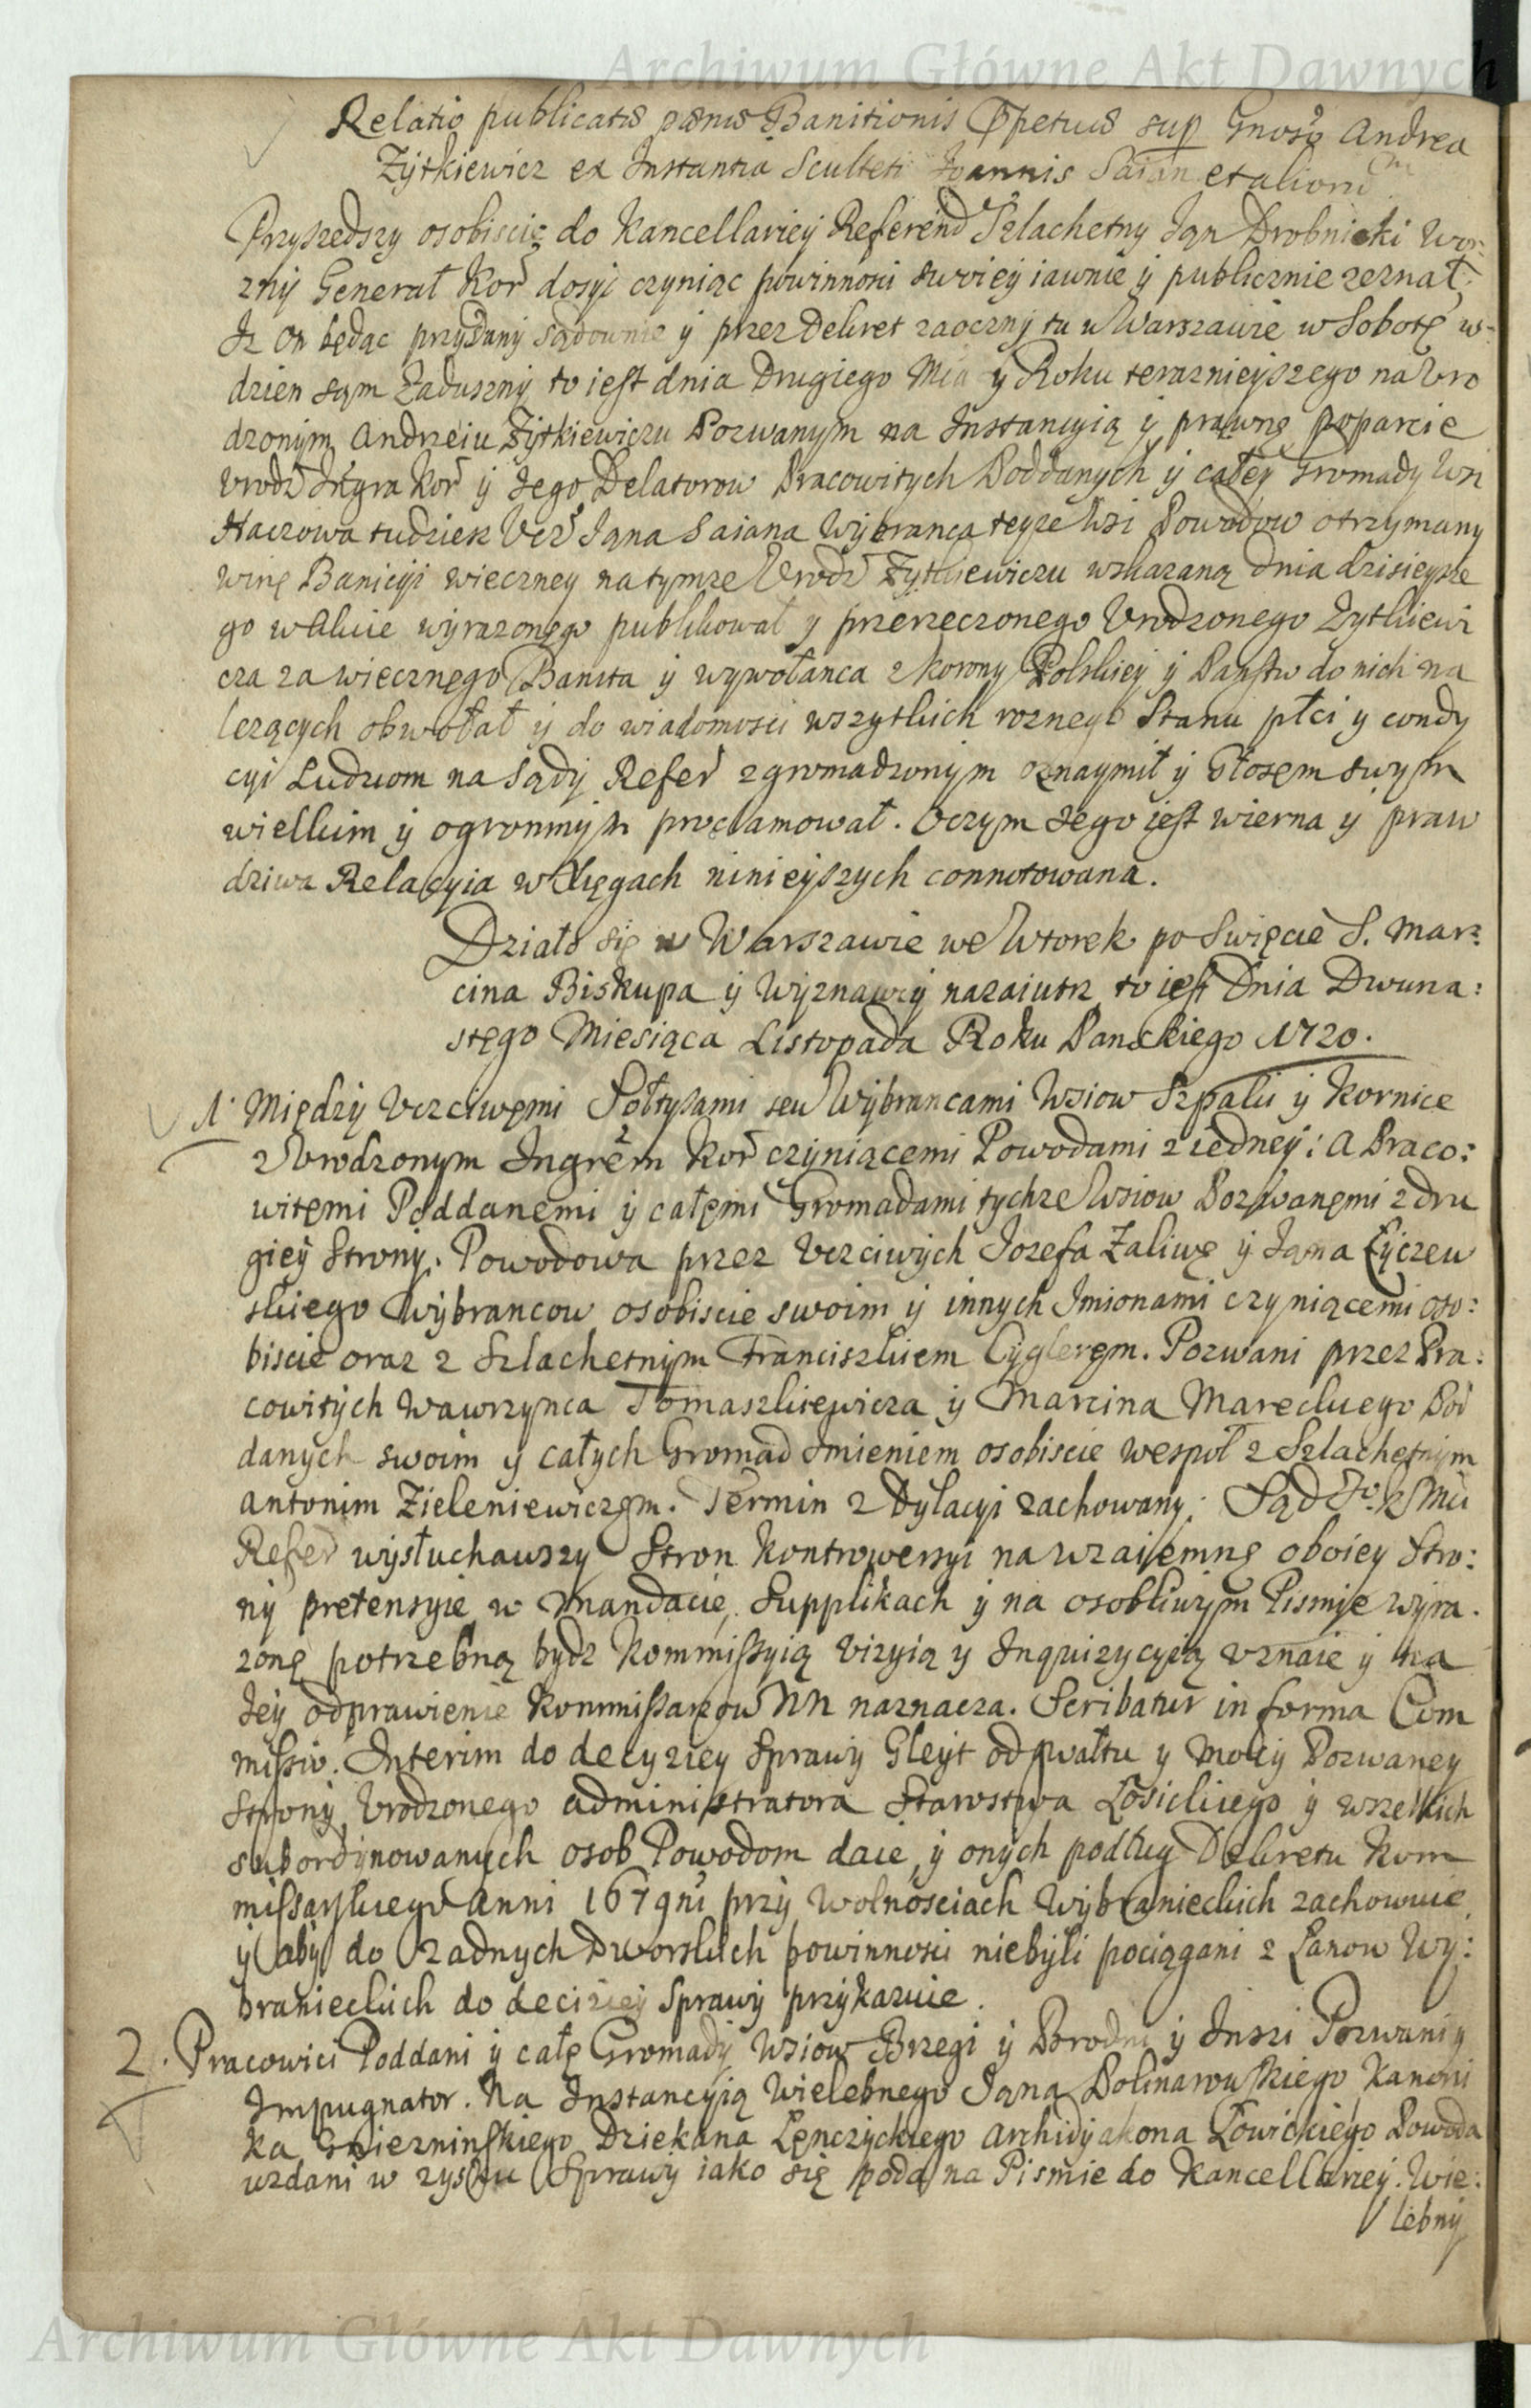 Archiwum Główne Akt Dawnych
Relatio publicatæ pœnæ Banitionis Ppetuæ sup Gnoso Andrea
Zytkiewicz ex Instantia Sculteti Joannis Saian et aliorū
Przyszedszy osobiscie do Kancellariey Referend Szlachetny Jąn Drobnicki Woz
zny Generał Kor dosyc czyniąc powinnosci swoiey iawnie y publicznie zeznał,
Iz on będąc przydany sądownie y przez Dekret zaoczny tu w Warszawie w Sobotę w
dzien sąm Zaduszny to iest dnia Drugiego Mca y Roku teraznieyszego na Uro
dzonym Andrzeiu Zytkiewiczu Pozwanym na Instancyią y prawnę poparcie
Urodz Instygra Kor y Jego Delatorow Pracowitych Poddanych y całey Gromady Wsi
Haczowa tudziesz Ucz Jąna Saiana Wybranca teyze Wsi Powodow otrzymany
winę Banicyi wieczney na tymze Urodz Zytkiewiczu wskazaną dnia dzisieysze
go w Akcie wyrazonego publikował y przerzeczonego Urodzonego Zytkiewi
cza za wiecznego Banita y wywołanca z Korony Polskiey y Panstw do nich na
lezących obwołał y do wiadomosci wszytkich roznego Stanu płci y condy
cyi Ludziom na Sądy Refer zgromadzonym oznaymił y Głosem swym
wielkim y ogromnym proclamował. Oczym Jego iest wierna y praw
dziwa Relacyia w Xięgach ninieyszych connotowana.
Działo się w Warszawie we Wtorek po Swięcie S. Mar:
cina Biskupa y Wyznawcy nazaiutrz to iest Dnia Dwuna:
stego Miesiąca Listopada Roku Panskiego 1720.
1. Między Uczciwęmi Sołtysami seu Wybrancami Wsiow Szpaki y Kornice
z Urodzonym Ingrem Kor czyniącemi Powodami z iedney: a Praco:
witęmi Poddanemi y całęmi Gromadami tychze Wsiow Pozwanęmi z dru
giey Strony. Powodowa przez Uczciwych Jozefa Zaliwę y Jąna Łyczew
skiego Wybrancow osobiscie swoim y innych Imionami czyniącemi oso:
biscie oraz z Szlachetnym Franciszkiem Cyglerem. Pozwani przez Pra:
cowitych Wawrzynca Tomaszkiewicza y Marcina Mareckiego Pod
danych swoim y całych Gromad Imieniem osobiscie wespoł z Szlachetnym
Antonim Zieleniewiczem. Termin z Dylacyi zachowany. Sąd Jo K Mci
Refer wysłuchawszy Stron Kontrowersyi na wzaiemnę oboiey Stro:
ny pretensyie w Mandacie, Supplikach y na osobliwym Pismie wyra.
zonę potrzebną bydz Kommissyią Wizyią y Inquizycyią uznaie y na
Jey odprawienie Kommissarzow NN naznacza. Scribatur in forma Com
missio. Interim do decyziey Sprawy Gleyt od gwałtu y mocy Pozwaney
Strony, Urodzonego Administratora Starostwa Łosickiego y wszelkich
subordynowanych osob Powodom daie, y onych podług Dekretu Kom
missarskiego Anni 1679ni przy Wolnosciach Wybranieckich zachowuie
y aby do zadnych Dworskich powinnosci niebyli pociągani z Łanow Wy:
branieckich do deciziey Sprawy przykazuie.
2. Pracowici Poddani y całę Gromady Wsiow Brzegi y Brodni y Inszi Pozwani y
Impugnator. Na Instancyią Wielebnego Jąna Dolinawuskiego Kanoni
ka Gnieznin̄skiego Dziekana Łęnczyckiego Archidyakona Łowickiego Powoda
wzdani w zysku Sprawy iako się poda na Pismie do Kancellariey. Wie:
lebny
Archiwum Główne Akt Dawnych